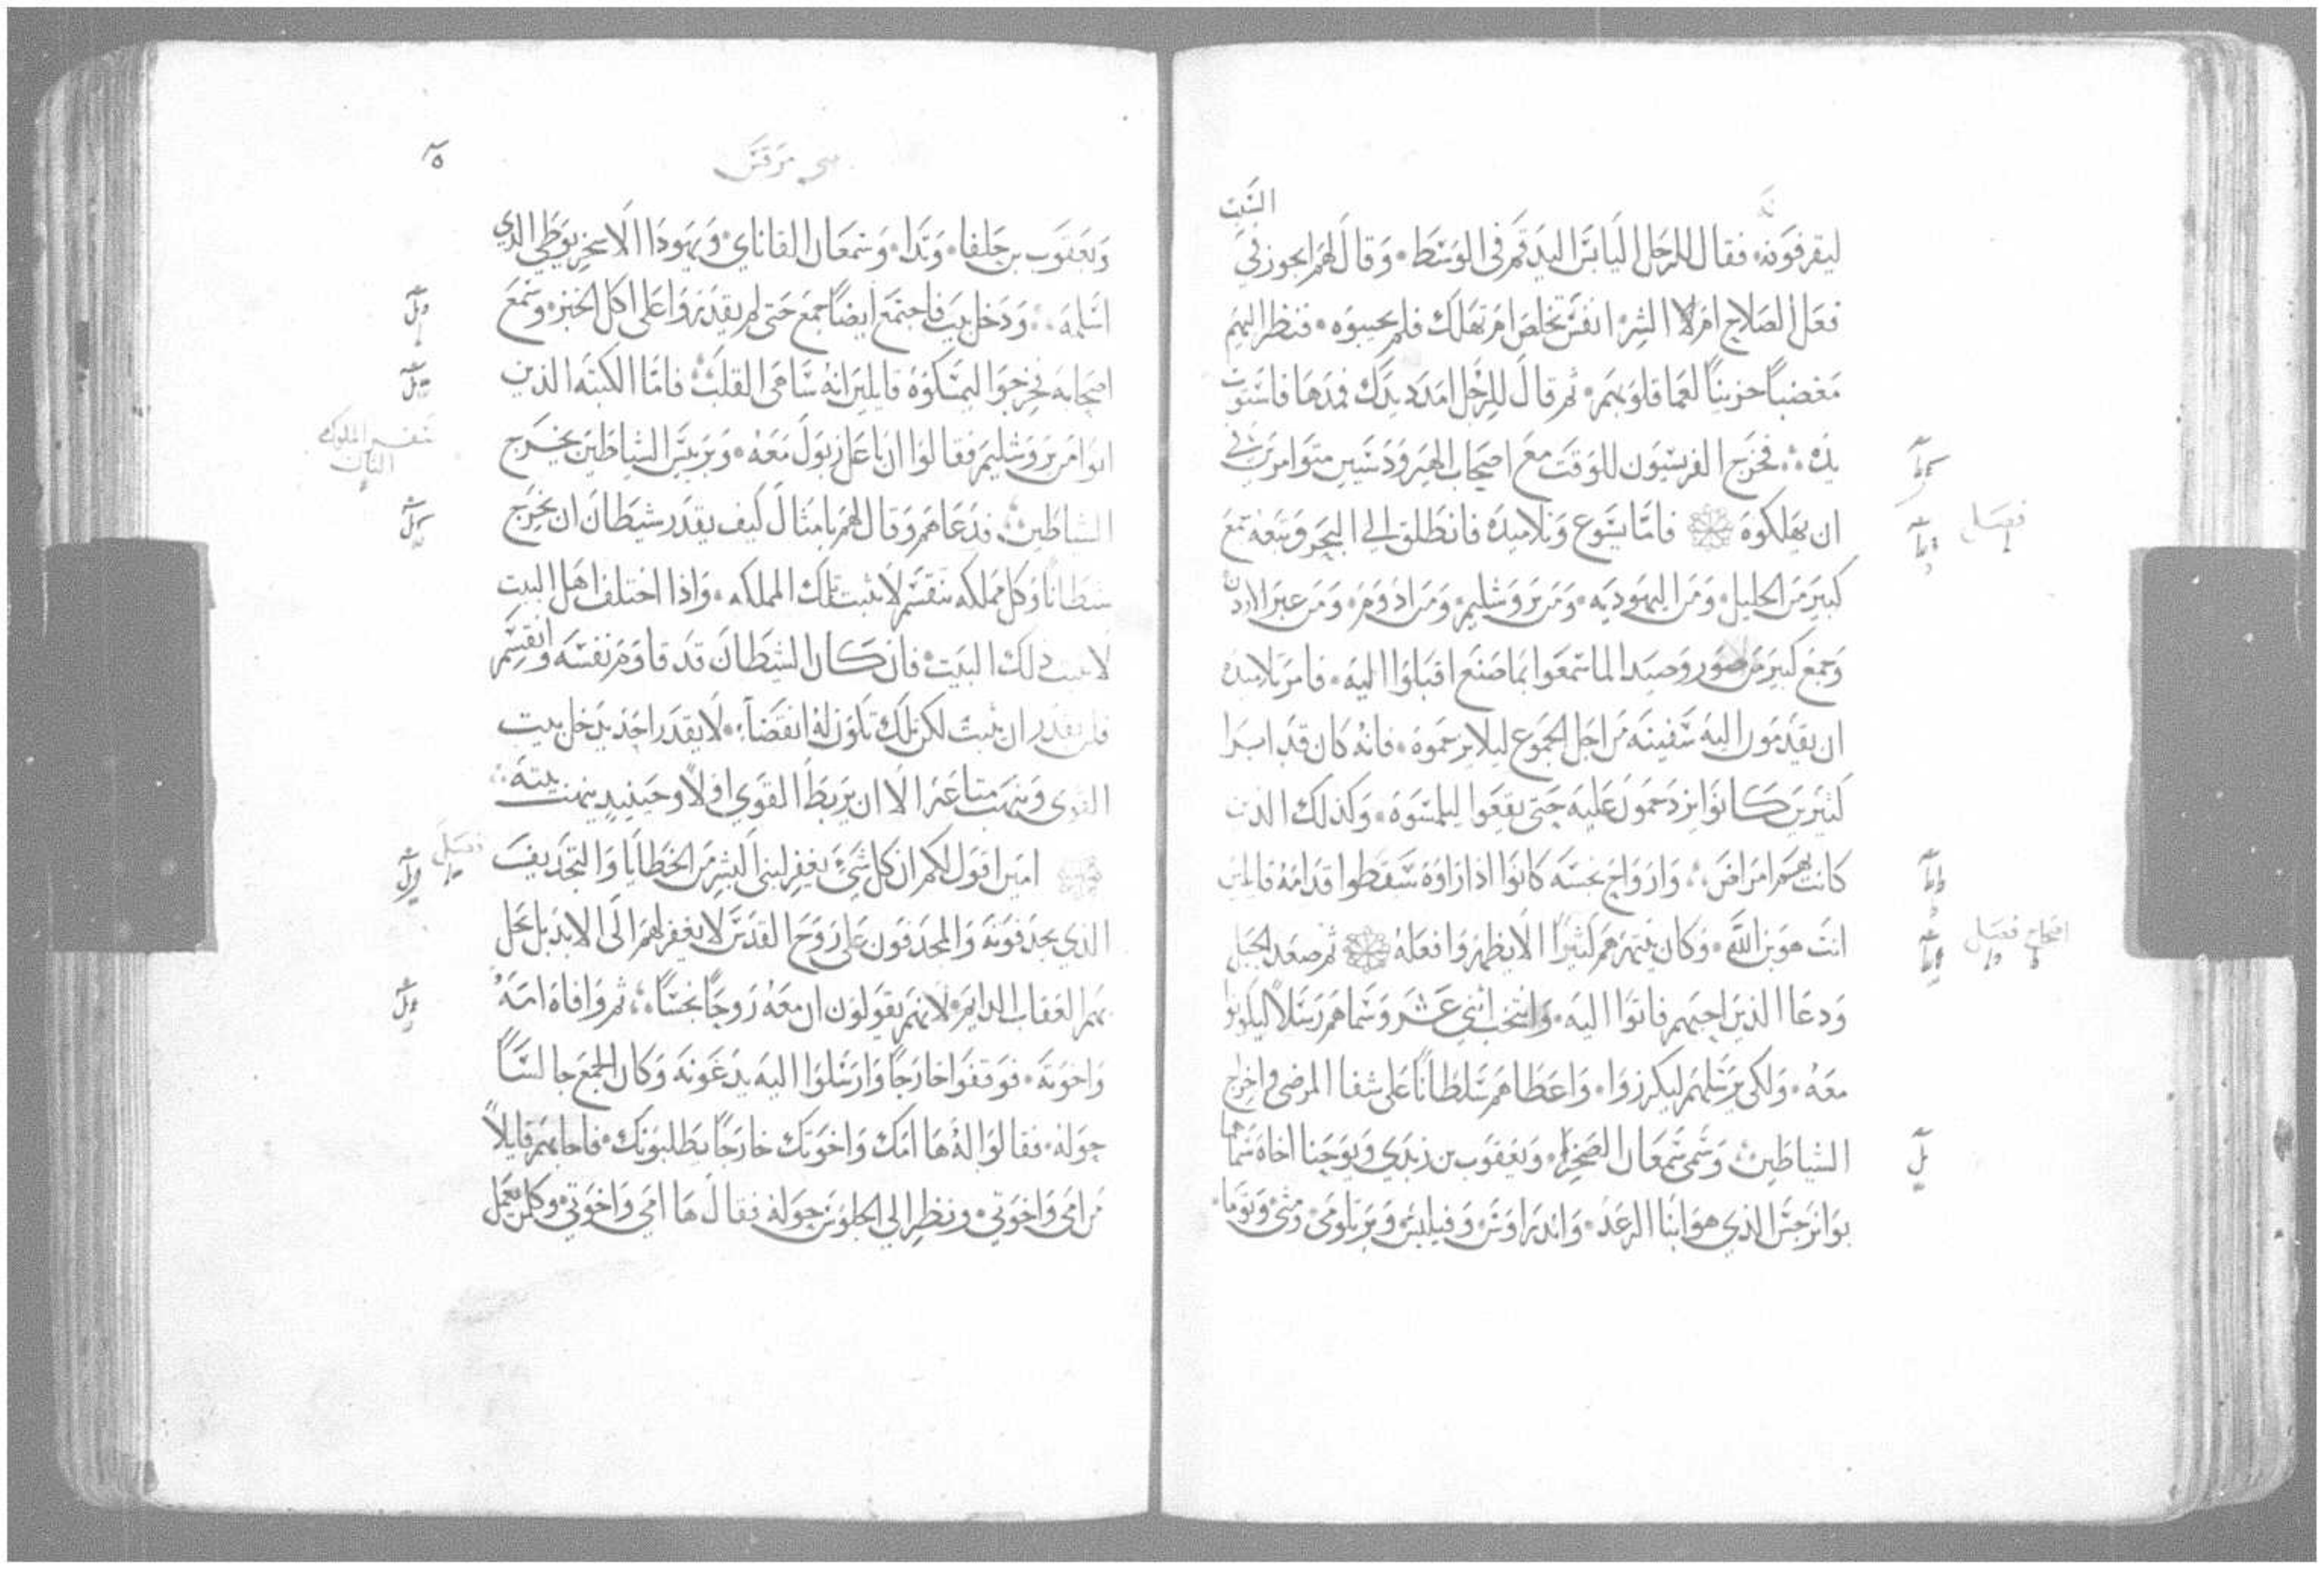 السبت
ليقرفونه فقال للرجل اليابس اليد قم في الوسط وقال لهم ايجوز في
فعل الصلاح ام لا الشر انفس تخلص ام تهلك فلم يجيبوه فنظر اليهم
مغضبا حزينا لعما قلوبهم ثم قال للرجل امدد يدك فمدها فاستوت
يده فخرج الفريسيون للوقت مع اصحاب الهيرودسيين متوامرين في
ان يهلكوه فاما يسوع وتلاميذه فانطلق الى البحر وتبعه جمع
كبير من الجليل ومن اليهوديه ومن يروشليم ومن ادوم ومن عبر الاردن
وجمع كبير من صور وصيدا لما سمعوا بما صنع اقبلوا اليه فامر تلاميذه
ان يقدمون اليه سفينه من اجل الجموع ليلا يزحموه فانه كان قد ابرا
كثيرين كانوا يزدحمون عليه حتى يقعوا ليلمسوه وكذلك الذين
كانت بهم امراض وارواح نجسه كانوا اذا راوه سقطوا قدامه قايلين
انت هو بن الله وكان ينتهرهم كثيرا الا يظهروا فعله ثم صعد الجبل
ودعا الذين احبهم فاتوا اليه وانتخب اثني عشر وسماهم رسلا ليكونوا
معه ولكي يرسلهم ليكرزوا واعطاهم سلطانا على شفا المرضى واخراج
الشياطين وسمى سمعان الصخره ويعقوب بن زبدي ويوحنا اخاه سماهما
بوانرجس الذي هو ابنا الرعد واندراوس وفيلبس وبرتلومي ومتى وتوما
فصل
فصل
مرقس
ويعقوب بن حلفا وتدا وسمعان القاناي ويهودا الاسخريوطي الذي
اسلمه ودخل بيت فاجتمع ايضا جمع حتى لم يقدروا على اكل الخبز وسمع
اصحابه فخرجوا ليمسكوه قايلين انه ساهي القلب فاما الكتبه الذين
اتوا من يروشليم فقالوا ان باعلزبول معه وبرييس الشياطين يخرج
الشياطين فدعاهم وقال لهم بامثال كيف يقدر شيطان ان يخرج
شيطانا وكل مملكه تنقسم لا تثبت تلك المملكه واذا اختلف اهل البيت
لا يثبت ذلك البيت فان كان الشيطان قد قاوم نفسه وانقسم
فلن يقدر ان يثبت لكن تكون له انقضا لا يقدر احد يدخل بيت
القوي وينهب متاعه الا ان يربط القوي اولا وحينيذ ينهب بيته
امين اقول لكم ان كل شي يغفر لبني البشر من الخطايا والتجديف
الذي يجدفونه والمجدفون على روح القدس لا يغفر لهم الى الابد بل يحل
بهم العقاب الدايم لانهم يقولون ان معه روحا نجسا ثم وافاه امه
واخوته فوقفوا خارجا وارسلوا اليه يدعونه وكان الجمع جالسا
حوله فقالوا له ها امك واخوتك خارجا يطلبونك فاجابهم قايلا
من امي واخوتي ونظر الي الجلوس حوله فقال ها امي واخوتي وكل من يعمل
فصل